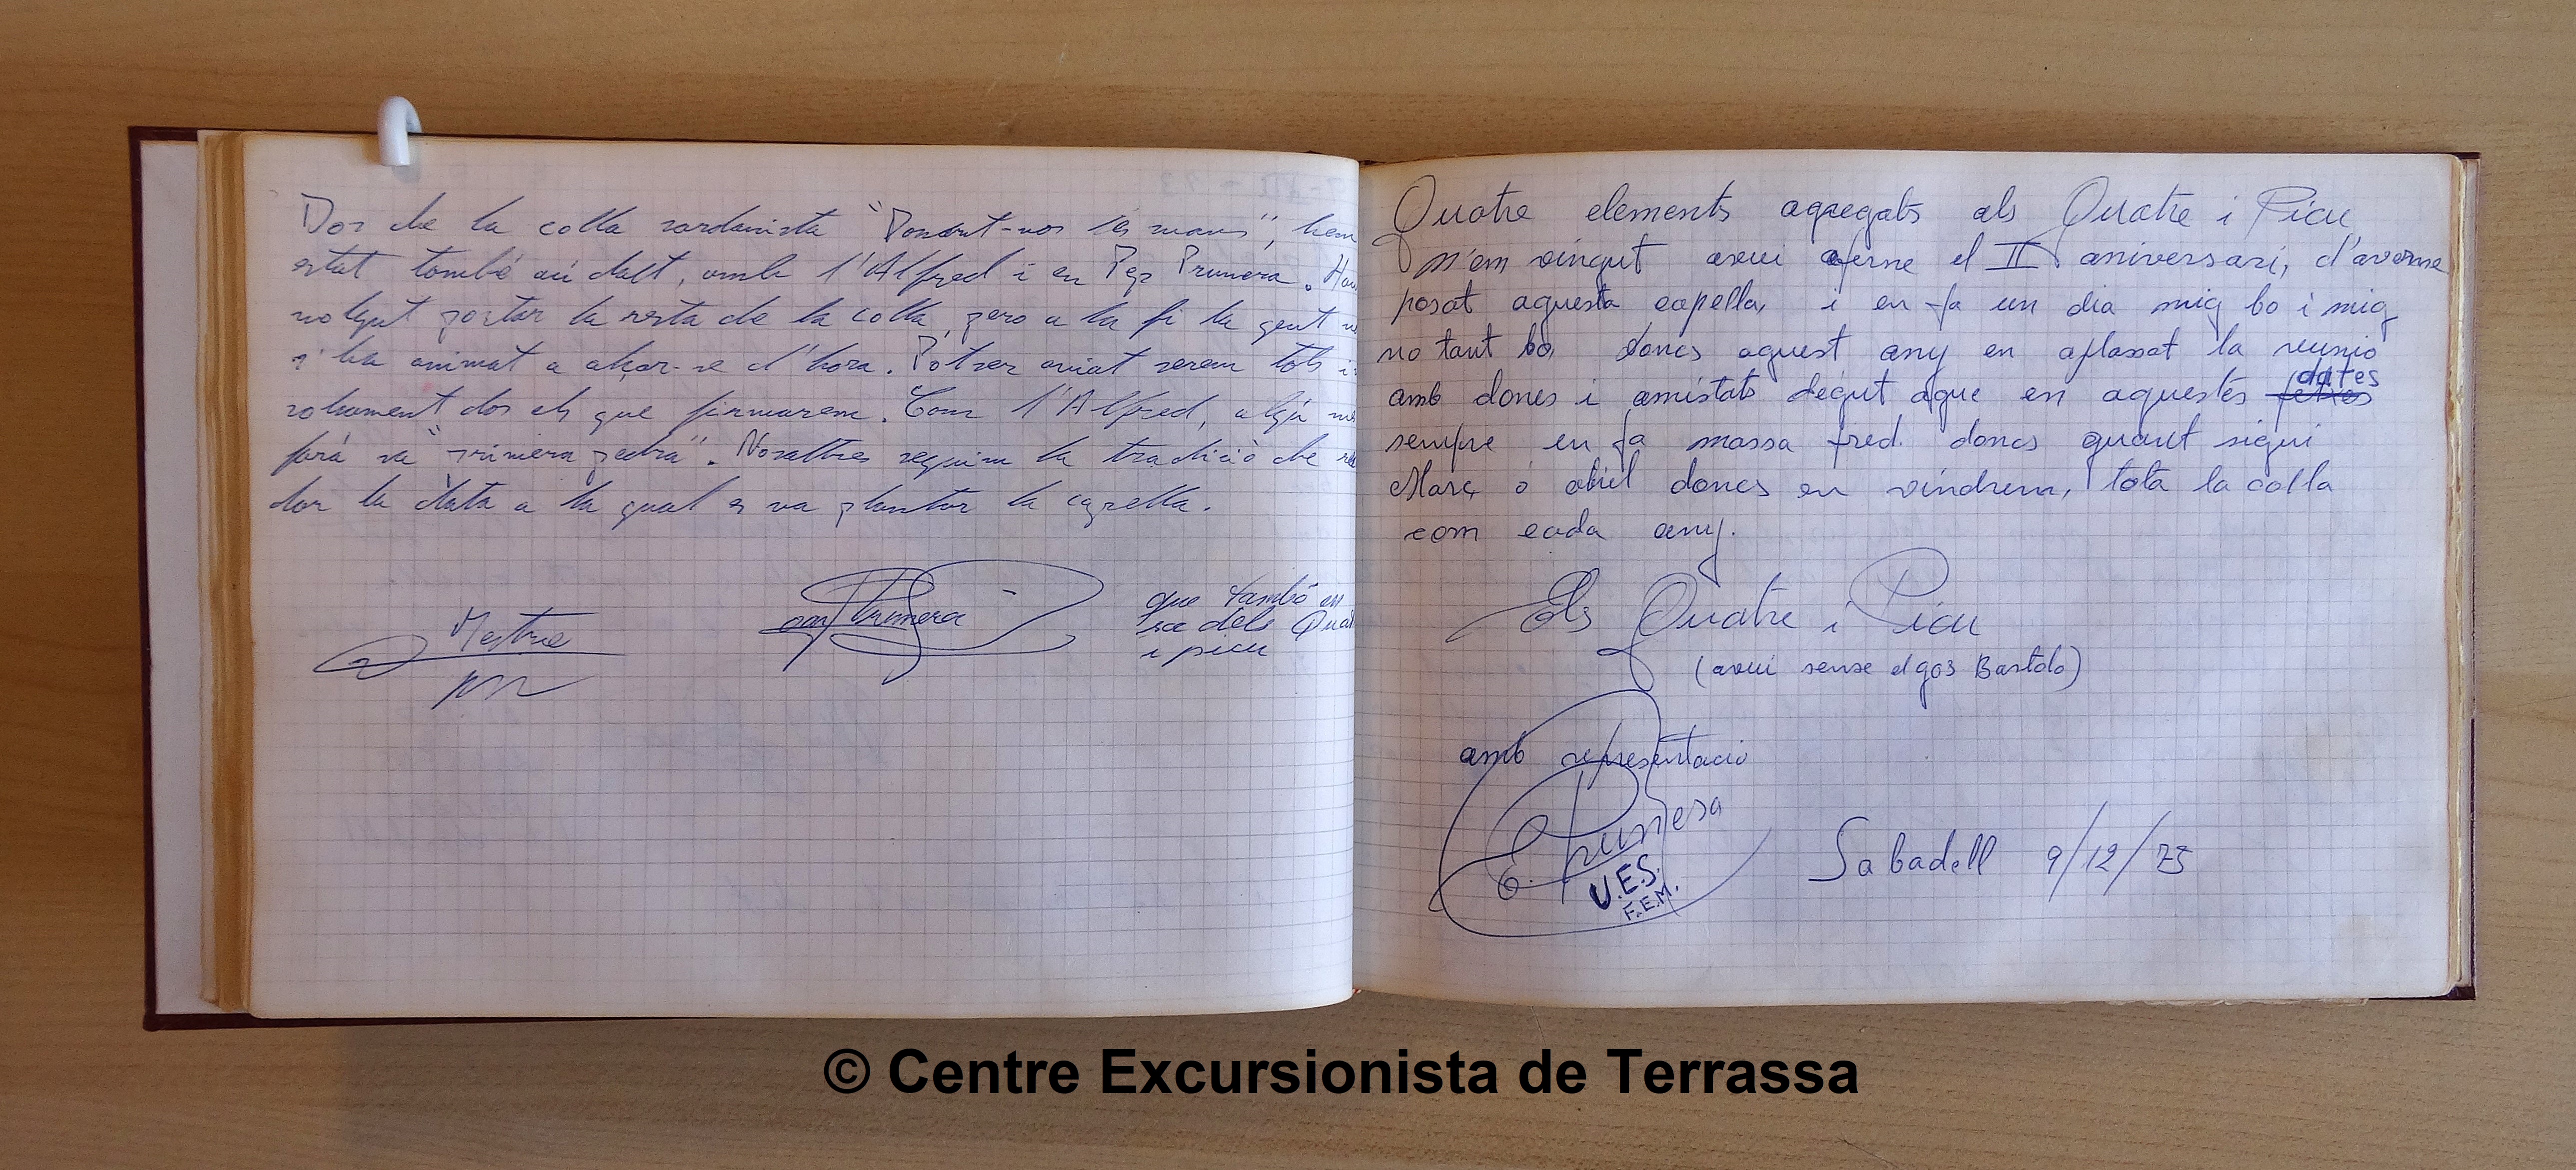 Dos de la colla sardanista "Donant-nos les mans", hem
estat també aci dalt, amb l'Alfred i en Pep Prunera.
volgut portar la resta de la colla, pero a la fi la gent
s'ha animat a alçar-se d'hora. Potser aviat serem tots i
solsament dos els que firmarem. Com l'Alfred, algú
farà sa "primera pedra". Nosaltres seguim la tradició de
dor la data a la qual es va plantar la capella.
Mestre
Prunera
que també en
sa dels Quat
i picu
Quatre elements agregats als Quatre i Picu
m'em vingut avui aferne el II aniversari, d'averne
posat aquesta capella, i en fa un dia mig bo i mig
no tant bo, doncs aquest any en aplassat la reunio
amb dones i amistats degut aque en aquestes fetxes dates
sempre en fa massa fred. doncs quant sigui
Març o abril doncs en vindrem, tota la colla
com cada any.
Els Quatre i Picu
(avui sense el gos Bartolo)
amb representacio
E. Prunera
U.E.S.
F.E.M.
Sabadell 9/12/75
© Centre Excursionista de Terrassa